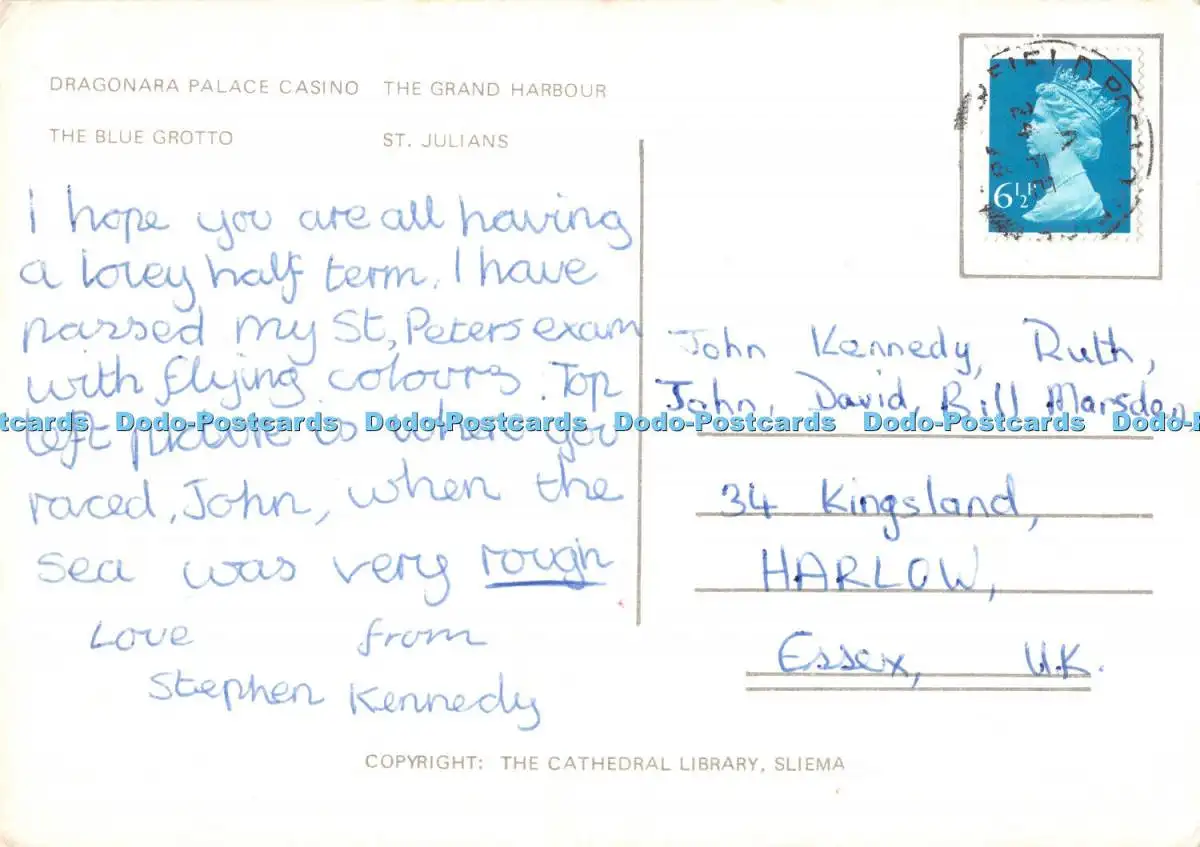 DRAGONARA PALACE CASINO THE GRAND HARBOUR
THE BLUE GROTTO ST. JULIANS
I hope you are all having
a lovey half term. I have
passed my St, Peters exam
with flying colours. Top
left picture is where you
raced, John, when the
sea was very rough
Love from
Stephen Kennedy
6½P
John Kennedy, Ruth,
John, David, Bill Marsden
34 Kingsland,
HARLOW,
Essex, U.K.
Postcards Dodo-Postcards Dodo-Postcards Dodo-Postcards Dodo-Postcards Dodo-P
COPYRIGHT: THE CATHEDRAL LIBRARY, SLIEMA